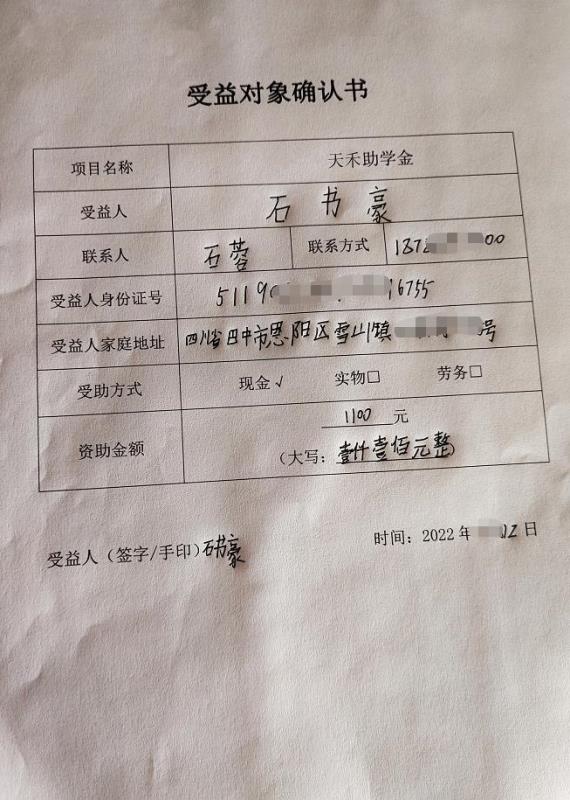 受益对象确认书
项目名称 天禾助学金
受益人 石书豪
联系人 石蓉 联系方式 187 00
受益人身份证号 5119 16755
受益人家庭地址 四川省巴中市恩阳区雪山镇 号
受助方式 现金√ 实物□ 劳务□
资助金额 1100 元
(大写: 壹仟壹佰元整)
受益人(签字/手印) 石书豪 时间: 2022年 02日